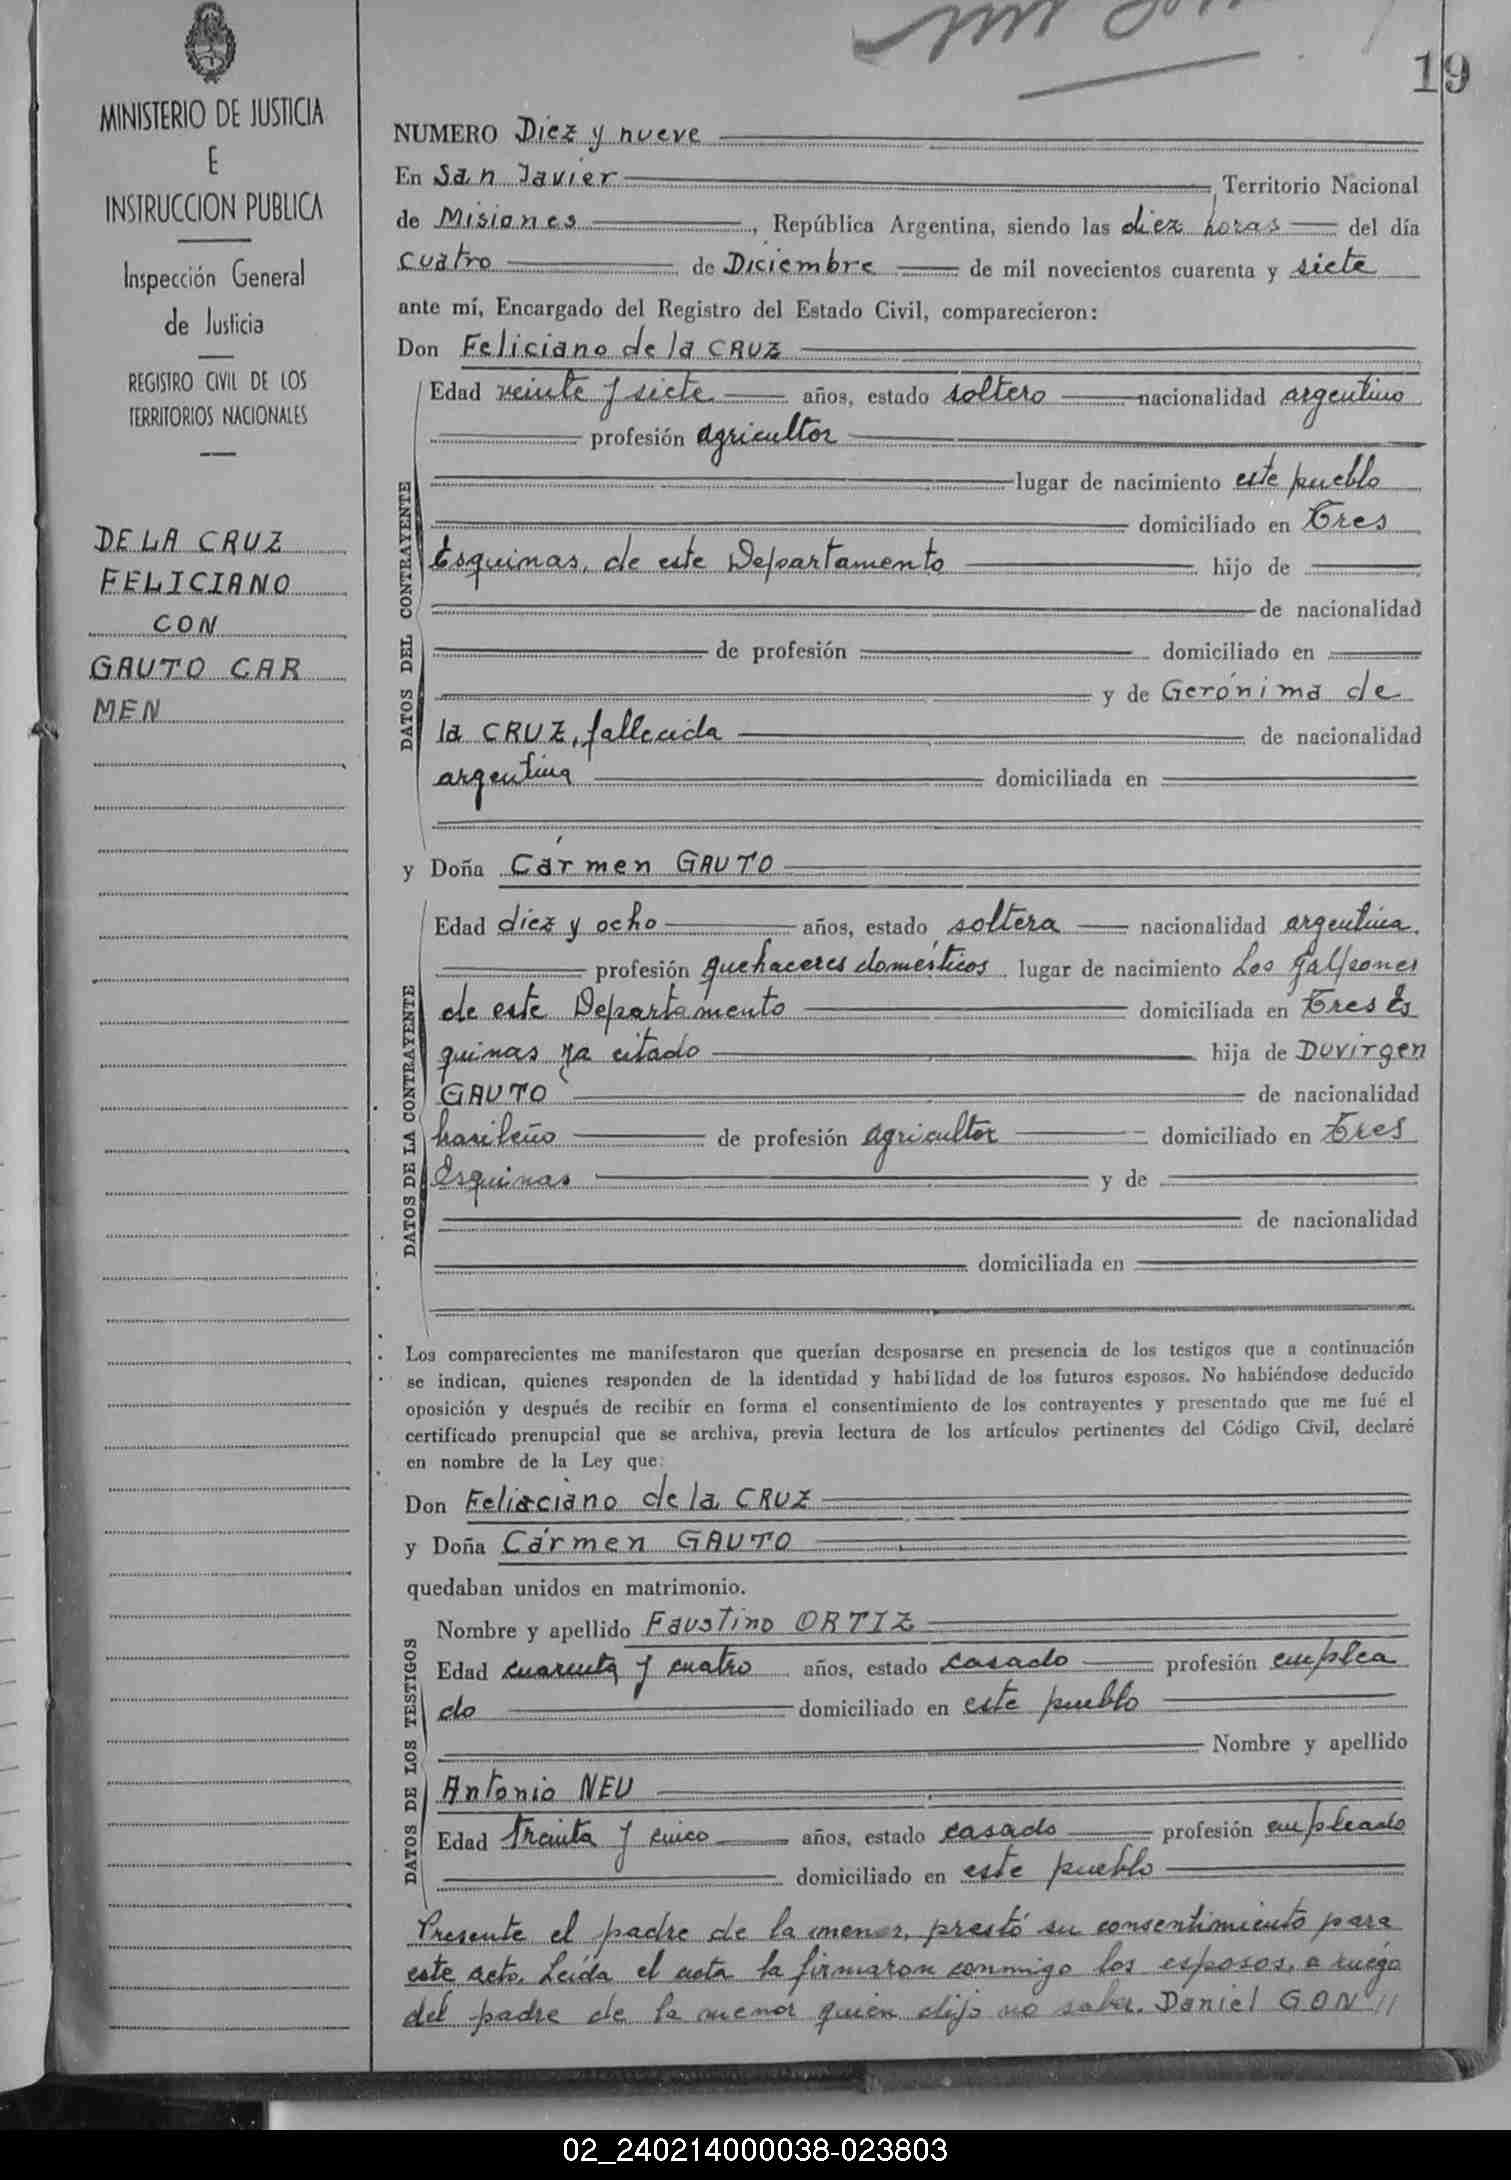 19
MINISTERIO DE JUSTICIA
E
INSTRUCCION PUBLICA
Inspección General
de Justicia
REGISTRO CIVIL DE LOS
TERRITORIOS NACIONALES
DE LA CRUZ
FELICIANO
CON
GAUTO CAR
MEN
NUMERO Diez y nueve
En San Javier, Territorio Nacional
de Misiones, República Argentina, siendo las diez horas del día
cuatro de Diciembre de mil novecientos cuarenta y siete
ante mí, Encargado del Registro del Estado Civil, comparecieron:
Don Feliciano de la CRUZ
DATOS DEL CONTRAYENTE
Edad veinte y siete años, estado soltero nacionalidad argentino
profesión agricultor
lugar de nacimiento este pueblo
domiciliado en Tres
Esquinas, de este Departamento hijo de
de nacionalidad
de profesión domiciliado en
y de Gerónima de
la CRUZ, fallecida de nacionalidad
argentina domiciliada en
y Doña Cármen GAUTO
DATOS DE LA CONTRAYENTE
Edad diez y ocho años, estado soltera nacionalidad argentina.
profesión quehaceres domésticos lugar de nacimiento Los Galpones
de este Departamento domiciliada en Tres Es
quinas ya citado hija de Duvirgen
GAUTO de nacionalidad
brasileño de profesión agricultor domiciliado en Tres
Esquinas y de
de nacionalidad
domiciliada en
Los comparecientes me manifestaron que querían desposarse en presencia de los testigos que a continuación
se indican, quienes responden de la identidad y habilidad de los futuros esposos. No habiéndose deducido
oposición y después de recibir en forma el consentimiento de los contrayentes y presentado que me fué el
certificado prenupcial que se archiva, previa lectura de los artículos pertinentes del Código Civil, declaré
en nombre de la Ley que:
Don Feliciano de la CRUZ
y Doña Cármen GAUTO
quedaban unidos en matrimonio.
DATOS DE LOS TESTIGOS
Nombre y apellido Faustino ORTIZ
Edad cuarenta y cuatro años, estado casado profesión emplea
do domiciliado en este pueblo
Nombre y apellido
Antonio NEU
Edad treinta y cinco años, estado casado profesión empleado
domiciliado en este pueblo
Presente el padre de la menor, prestó su consentimiento para
este acto. Leída el acta la firmaron conmigo los esposos, a ruego
del padre de la menor quien dijo no saber. Daniel GON //
02_240214000038-023803